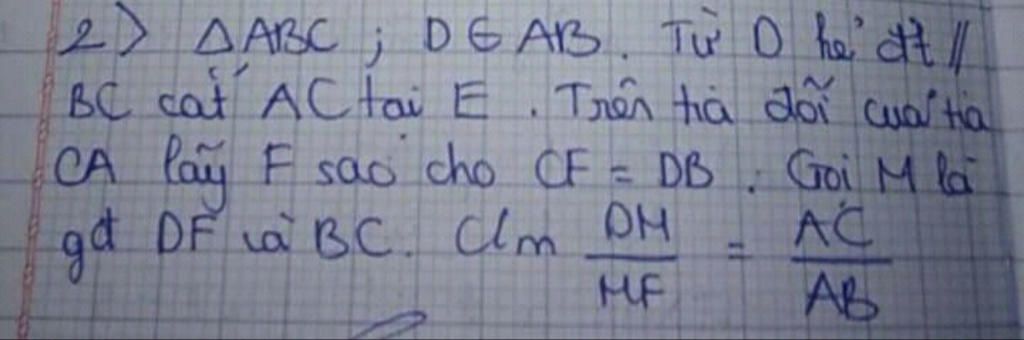 2> ΔABC ; D ∈ AB. Từ D hẻ đt //
BC cắt AC tại E. Trên tia đối của tia
CA lấy F sao cho CF = DB. Gọi M là
gđ DF và BC. C/m DM/MF = AC/AB